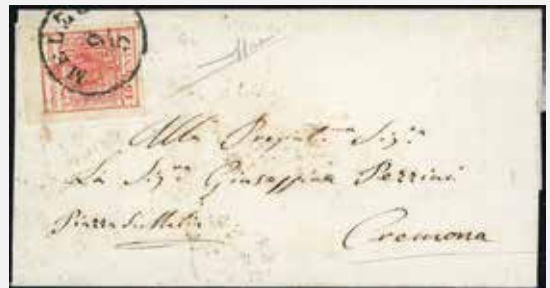 MELE
9
5
Alla Pregiat.ma Sig.ra
La Sig.ra Giuseppina Perrini
Piazza
Cremona